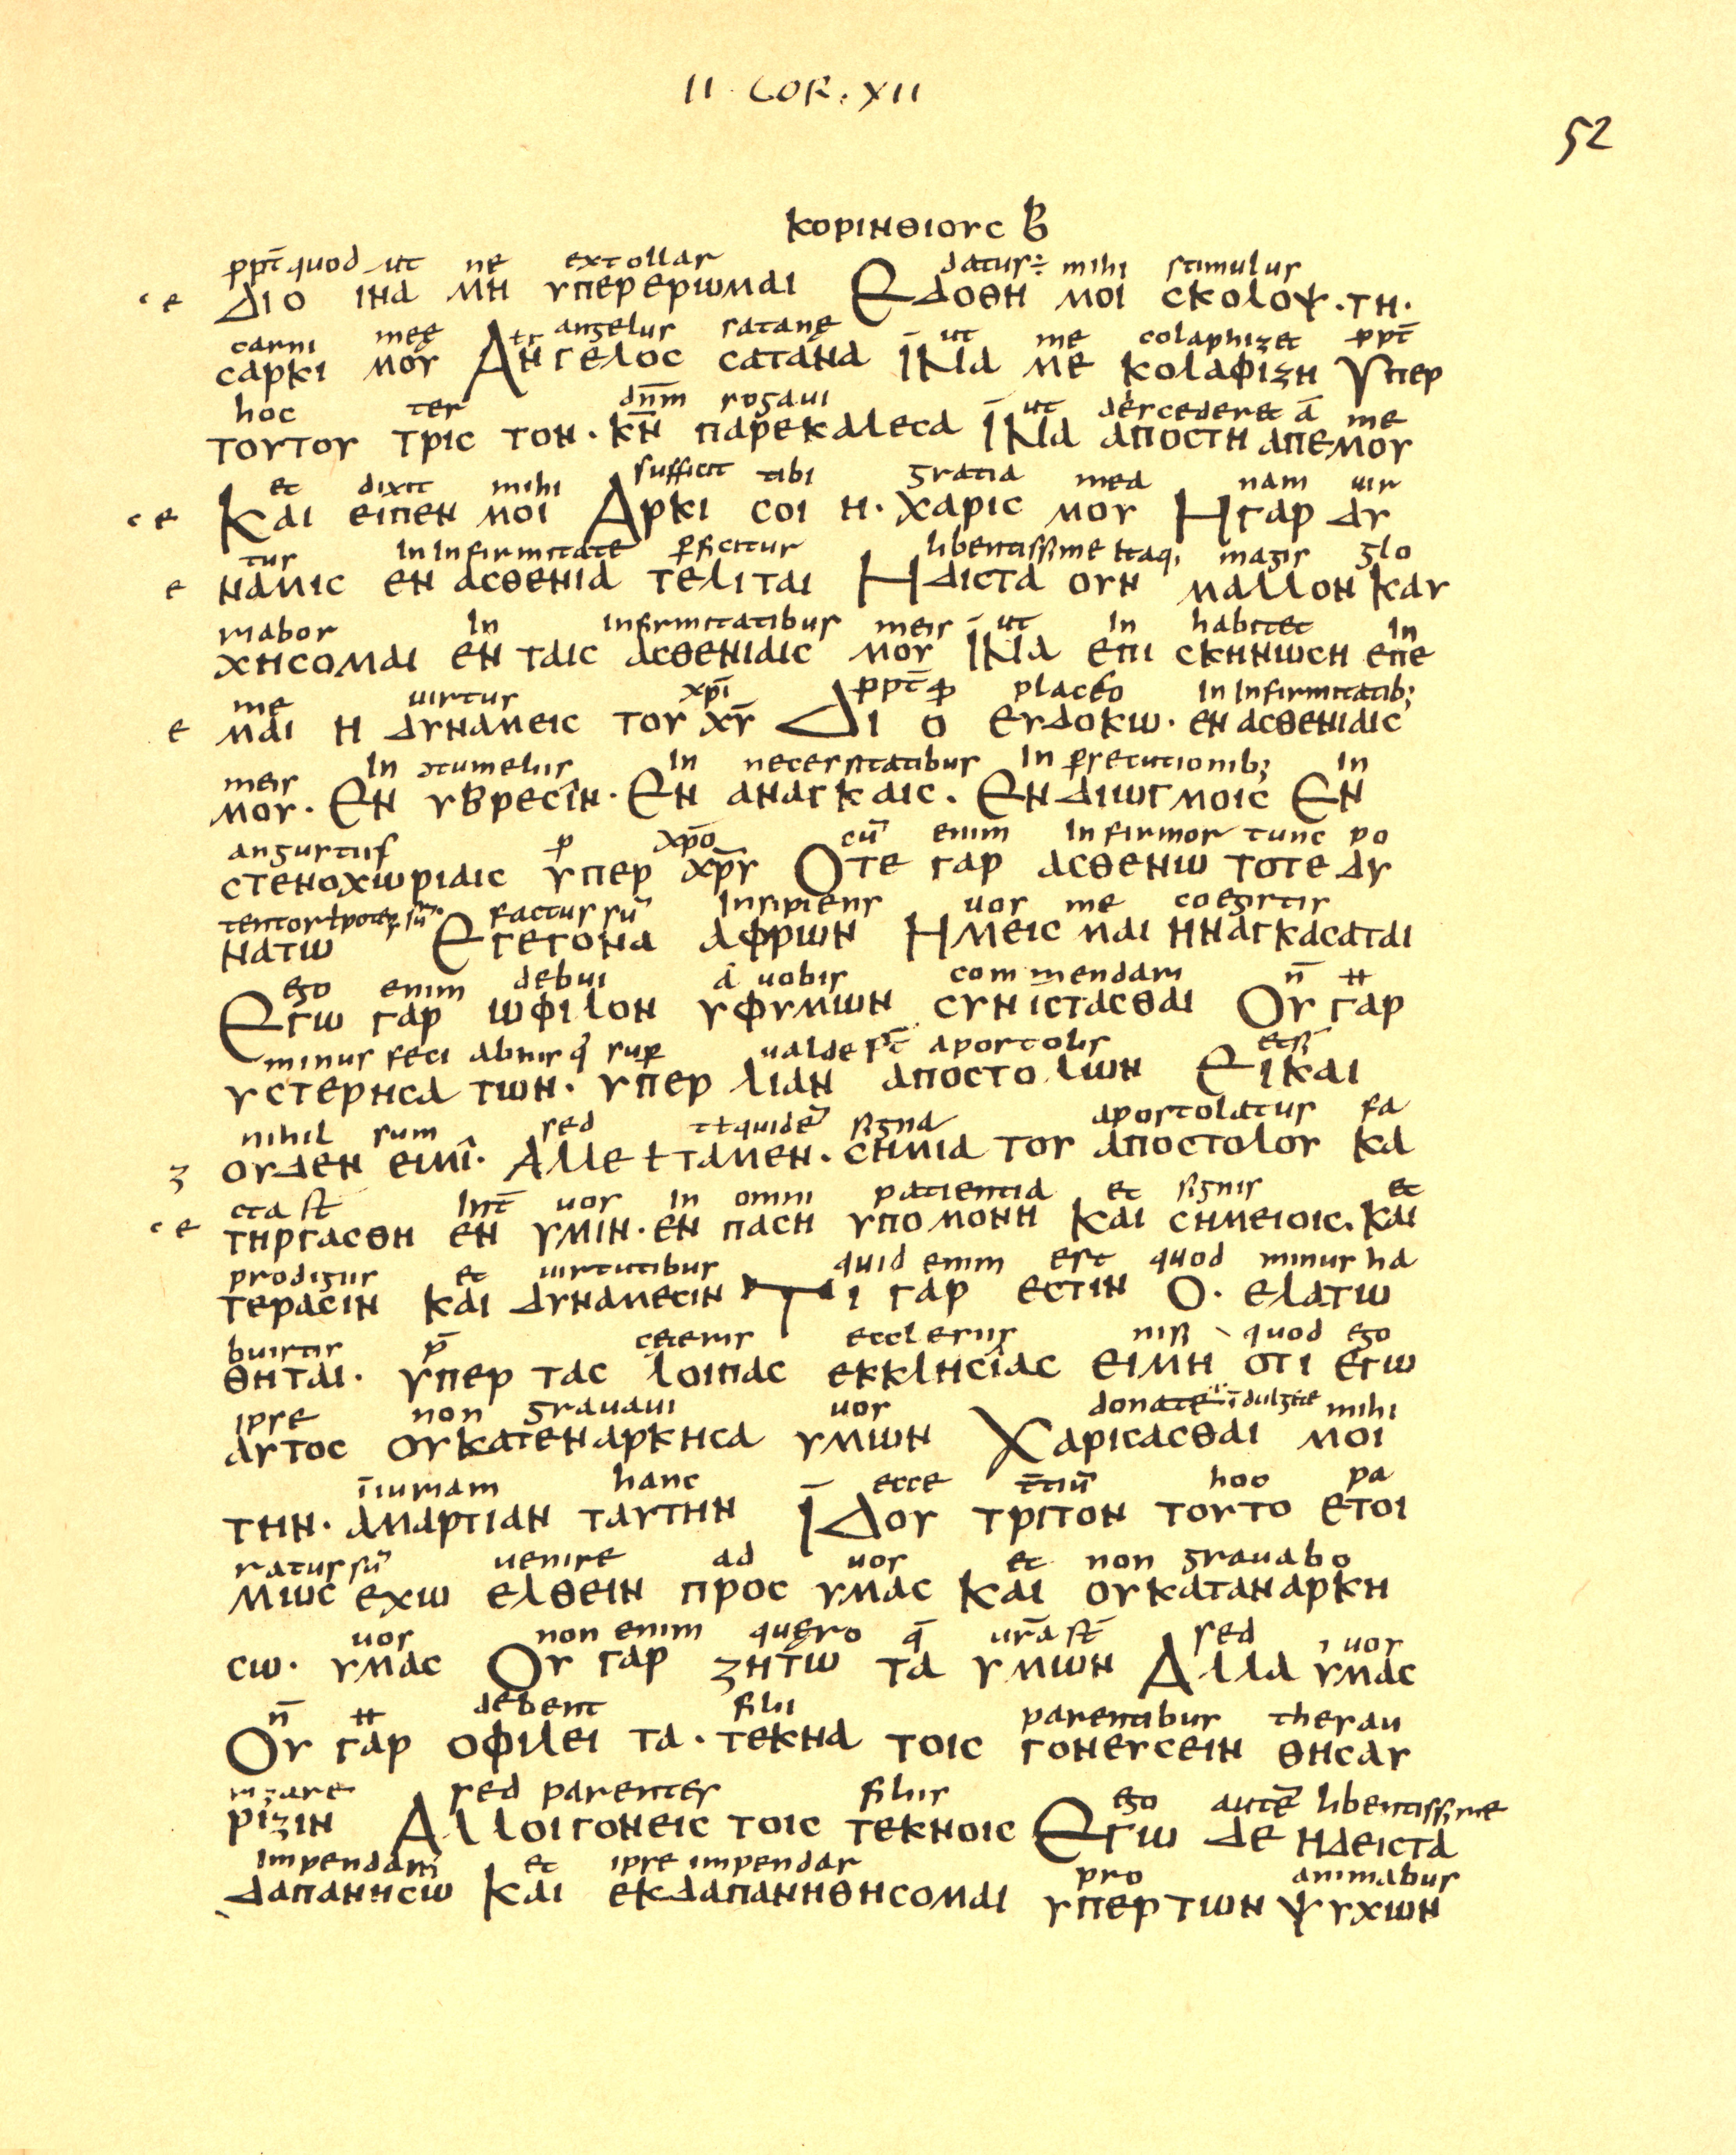 II · COR · XII
52
ΚΟΡΙΝΘΙΟΥC B
ppt̄ quod ut ne extollar datus÷ mihi stimulus
c e ΔΙΟ ΙΝΑ ΜΗ ΥΠΕΡΕΡΩΜΑΙ ΕΔΟΘΗ ΜΟΙ CΚΟΛΟΨ·ΤΗ·
carni meę angelus satanę ut me colaphizet ppt̄
CΑΡΚΙ ΜΟΥ ΑΝΓΕΛΟC CΑΤΑΝΑ ΙΝΑ ΜΕ ΚΟΛΑΦΙΖΗ ΥΠΕΡ
hoc ter dn̄m rogaui ut discedere ā me
ΤΟΥΤΟΥ ΤΡΙC ΤΟΝ·ΚΝ̄ ΠΑΡΕΚΑΛΕCΑ ΙΝΑ ΑΠΟCΤΗ ΑΠΕΜΟΥ
et dixit mihi sufficit tibi gratia mea nam uir
c e ΚΑΙ ΕΙΠΕΝ ΜΟΙ ΑΡΚΙ CΟΙ Η·ΧΑΡΙC ΜΟΥ ΗΓΑΡ ΔΥ
tus in infirmitate pficitur libentissime itaq; magis glo
e ΝΑΜΙC ΕΝ ΑCΘΕΝΙΑ ΤΕΛΙΤΑΙ ΗΔΙCΤΑ ΟΥΝ ΜΑΛΛΟΝ ΚΑΥ
riabor in infirmitatibus meis ut in habitet in
ΧΗCΟΜΑΙ ΕΝ ΤΑΙC ΑCΘΕΝΙΑΙC ΜΟΥ ΙΝΑ ΕΠΙ CΚΗΝΩCΗ ΕΠΕ
me uirtus xp̄i ppt̄ placeo in infirmitatib;
e ΜΑΙ Η ΔΥΝΑΜΕΙC ΤΟΥ ΧῩ ΔΙ Ο ΕΥΔΟΚΩ·ΕΝ ΑCΘΕΝΙΑΙC
meis in ɔtumeliis in necessitatibus in psecutionib; in
ΜΟΥ·ΕΝ ΥΒΡΕCΙΝ·ΕΝ ΑΝΑΓΚΑΙC·ΕΝ ΔΙΩΓΜΟΙC ΕΝ
angustiis p xp̄o cū enim infirmor tunc po
CΤΕΝΟΧΩΡΙΑΙC ΥΠΕΡ ΧΡ̄Υ ΟΤΕ ΓΑΡ ΑCΘΕΝΩ ΤΟΤΕ ΔΥ
factus sū insipiens uos me coegistis
ΝΑΤΩ ΕΓΕΓΟΝΑ ΑΦΡΩΝ ΗΜΕΙC ΜΑΙ ΗΝΑΓΚΑCΑΤΑΙ
ego enim debui a uobis commendari n̄ ++
ΕΓΩ ΓΑΡ ΩΦΙΛΟΝ ΥΦΥΜΩΝ CΥΝΙCΤΑCΘΑΙ ΟΥ ΓΑΡ
minus feci abhis q̄ sup ualde st̄ apostolis etsi
ΥCΤΕΡΗCΑ ΤΩΝ·ΥΠΕΡ ΛΙΑΝ ΑΠΟCΤΟΛΩΝ ΕΙΚΑΙ
nihil sum sed quidē signa apostolatus fa
z ΟΥΔΕΝ ΕΙΜΙ·ΑΛΛΕ Ɨ ΤΑΜΕΝ·CΗΜΙΑ ΤΟΥ ΑΠΟCΤΟΛΟΥ ΚΑ
cta st uos in omni patientia et signis et
c e ΤΗΡΓΑCΘΗ ΕΝ ΥΜΙΝ·ΕΝ ΠΑCΗ ΥΠΟΜΟΝΗ ΚΑΙ CΗΜΕΙΟΙC·ΚΑΙ
prodigiis et uirtutibus quid enim est quod minus ha
ΤΕΡΑCΙΝ ΚΑΙ ΔΥΝΑΜΕCΙΝ ΤΙ ΓΑΡ ΕCΤΙΝ Ο·ΕΛΑΤΩ
buistis p̄ ceteris ecclesiis nisi quod ego
ΘΗΤΑΙ·ΥΠΕΡ ΤΑC ΛΟΙΠΑC ΕΚΚΛΗCΙΑC ΕΙΜΗ ΟΤΙ ΕΓΩ
ipse non grauaui uos donate īdulgete mihi
ΑΥΤΟC ΟΥΚΑΤΕΝΑΡΚΗCΑ ΥΜΩΝ ΧΑΡΙCΑCΘΑΙ ΜΟΙ
īiuriam hanc ecce t̄tiū hoc pa
ΤΗΝ·ΑΜΑΡΤΙΑΝ ΤΑΥΤΗΝ ΙΔΟΥ ΤΡΙΤΟΝ ΤΟΥΤΟ ΕΤΟΙ
ratus sū uenire ad uos et non grauabo
ΜΩC ΕΧΩ ΕΛΘΕΙΝ ΠΡΟC ΥΜΑC ΚΑΙ ΟΥΚΑΤΑΝΑΡΚΗ
uos non enim quęro q̄ urā st̄ sed uos
CΩ·ΥΜΑC ΟΥ ΓΑΡ ΖΗΤΩ ΤΑ ΥΜΩΝ ΑΛΛΑ ΥΜΑC
n̄ ++ debent filii parentibus thesau
ΟΥ ΓΑΡ ΟΦΙΛΕΙ ΤΑ·ΤΕΚΝΑ ΤΟΙC ΓΟΝΕΥCΕΙΝ ΘΗCΑΥ
rizare sed parentes filiis ego autē libentissime
ΡΙΖΙΝ ΑΛΛΟΙΓΟΝΕΙC ΤΟΙC ΤΕΚΝΟΙC ΕΓΩ ΔΕ ΗΔΕΙCΤΑ
impendam et ipse impendar pro animabus
ΔΑΠΑΝΗCΩ ΚΑΙ ΕΚΔΑΠΑΝΗΘΗCΟΜΑΙ ΥΠΕΡ ΤΩΝ ΨΥΧΩΝ